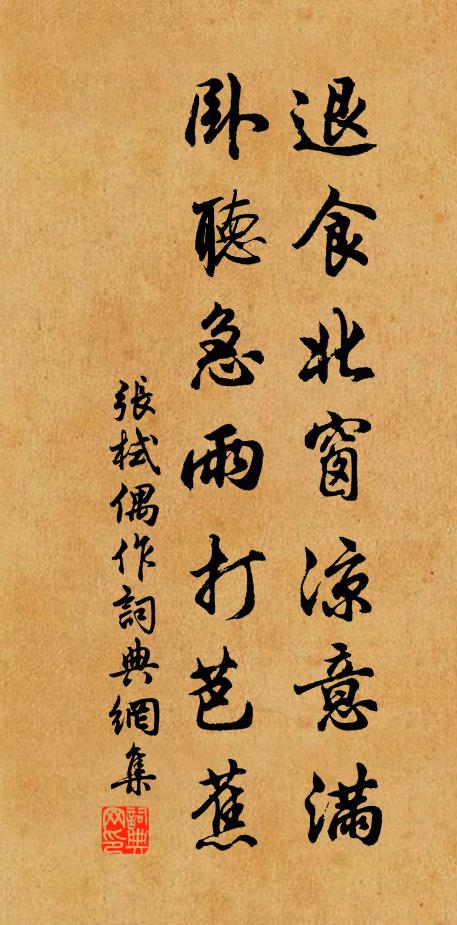 退食北窗涼意滿
卧聽急雨打芭蕉
張栻偶作詞典網集
詞典网印